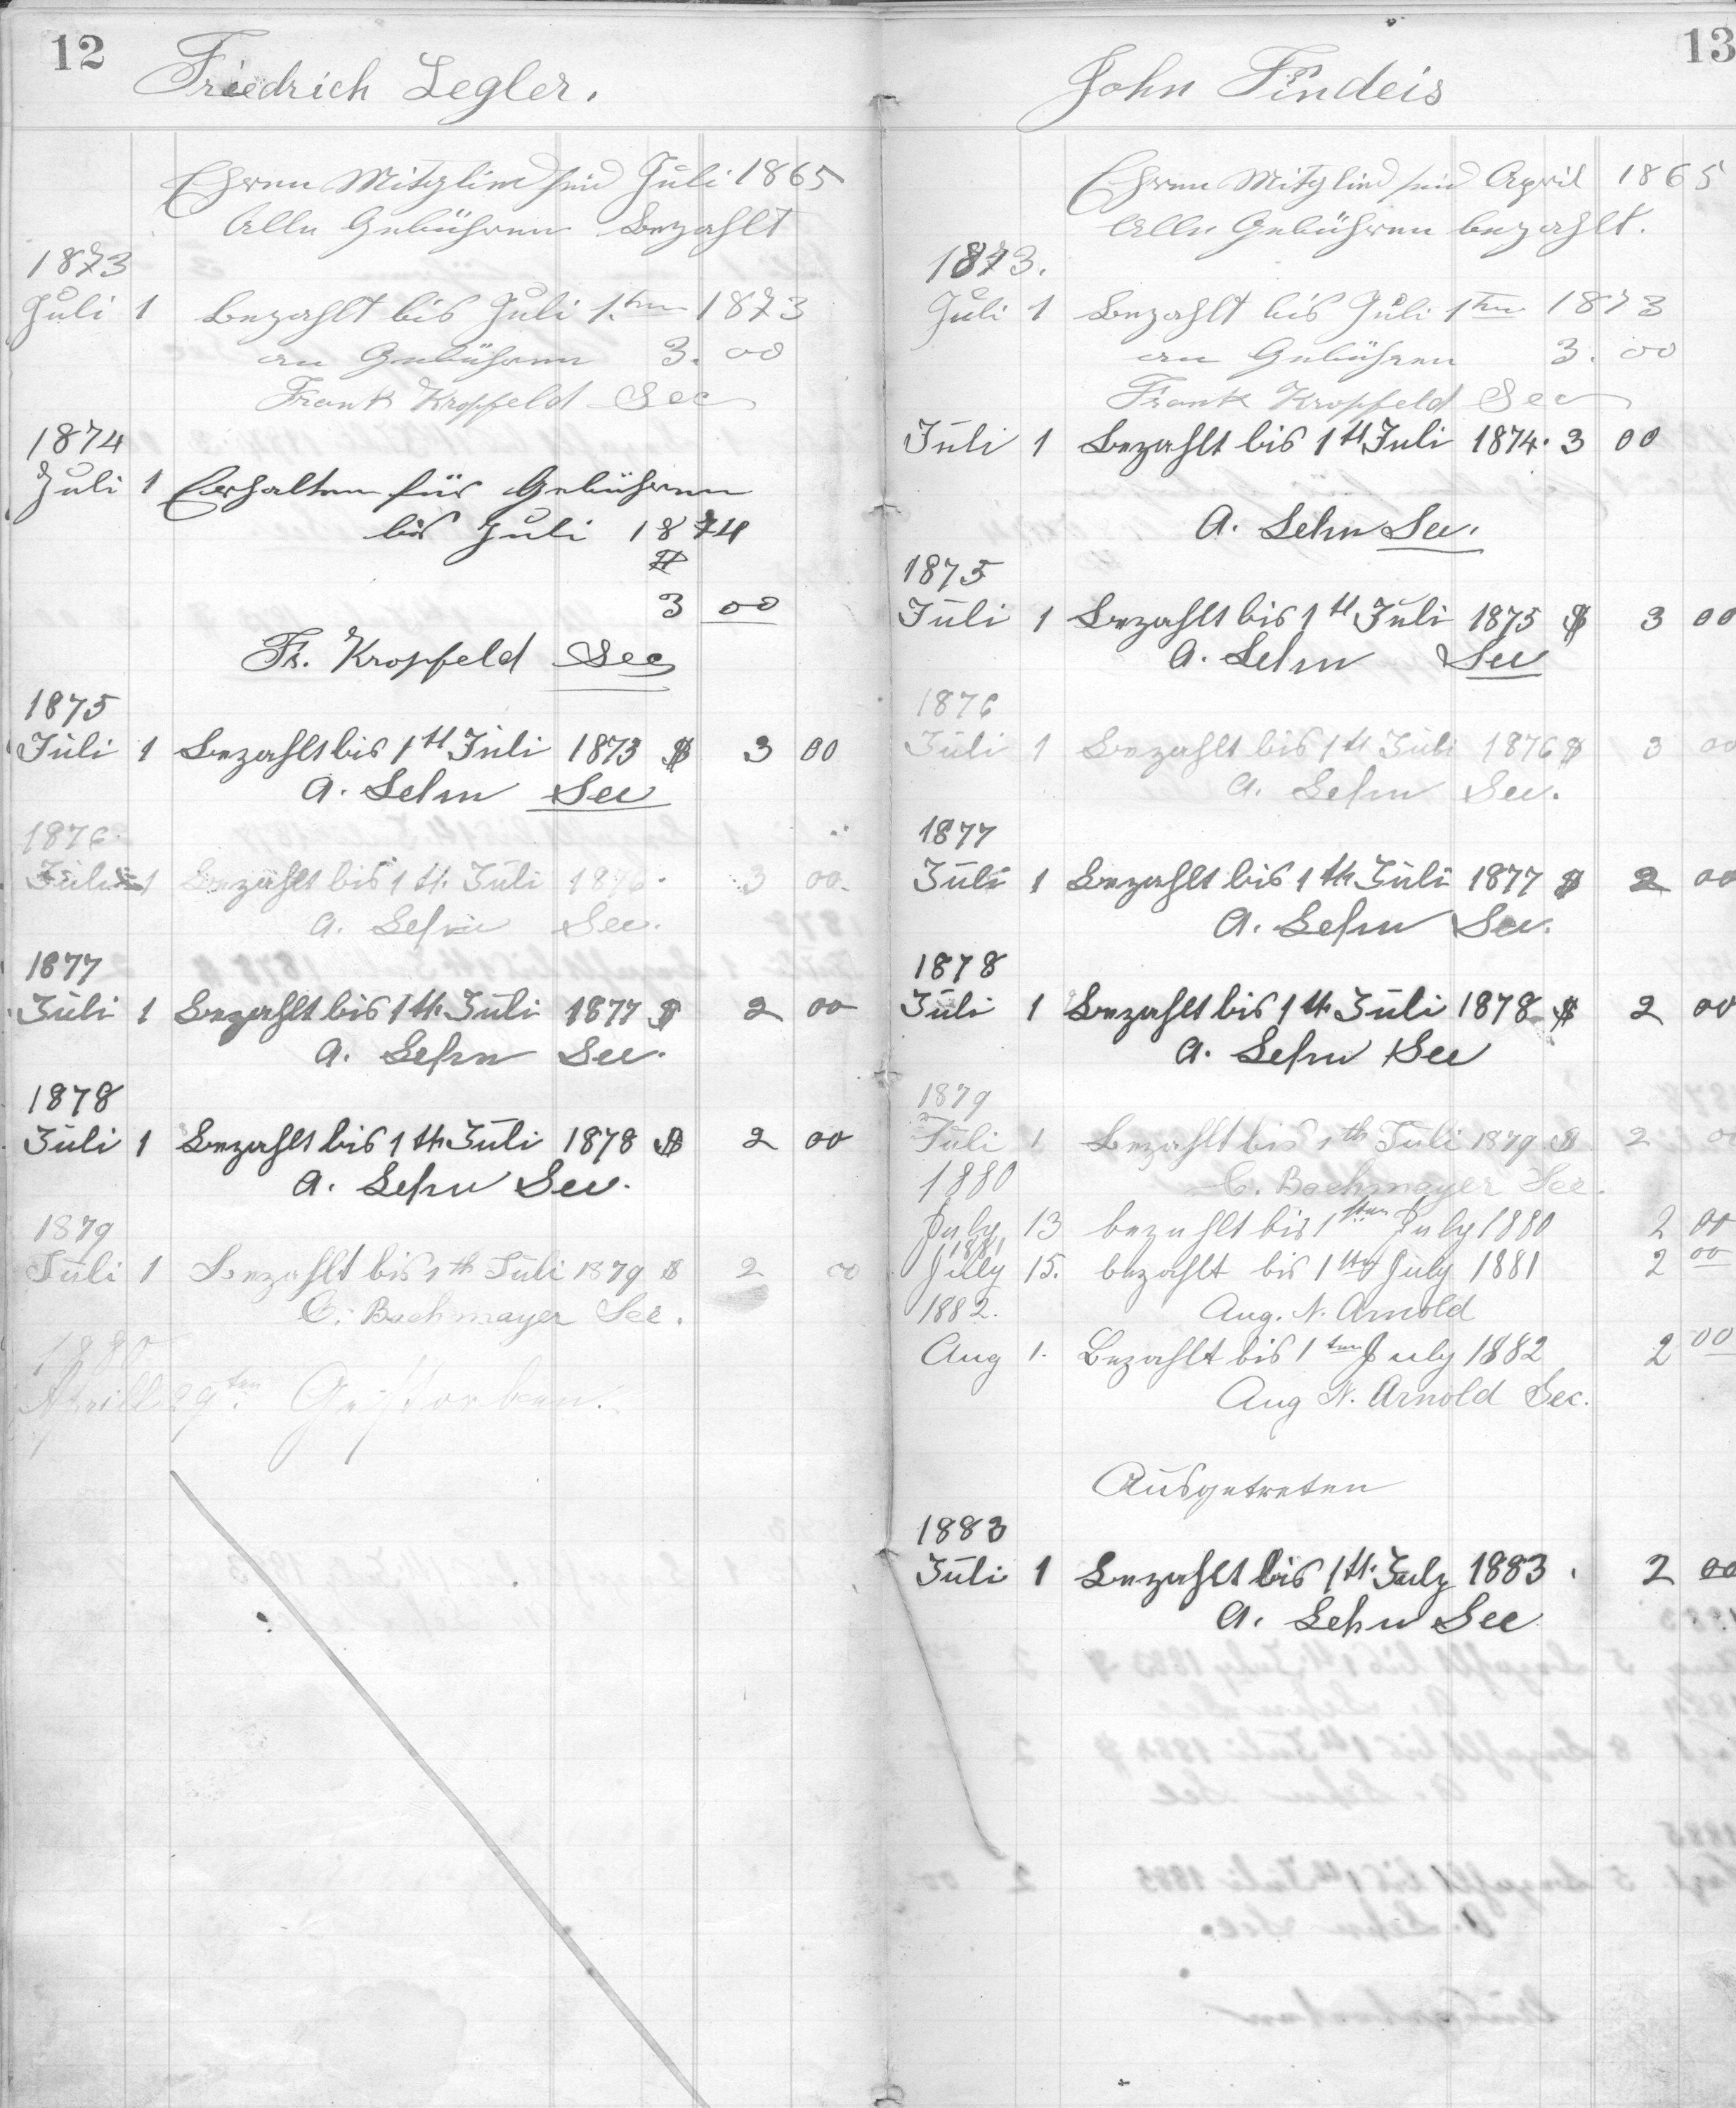 12
Friedrich Legler.
Ehren Mitglied seid Juli 1865
Alle Gebühren Bezahlt
1873
Juli 1 Bezahlt bis Juli 1.ten 1873
an Gebühren 3. 00
Frank Kropfeld Sec
1874
Juli 1 Erhalten für Gebühren
bis Juli 1874
$
3 00
Fr. Kropfeld Sec
1875
Juli 1 Bezahlt bis 1 tt Juli 1873 $ 3 00
A. Lehn Sec
1876.
Juli 1 Bezahlt bis 1 tt. Juli 1876. 3 00.
A. Lehn Sec.
1877
Juli 1 Bezahlt bis 1 tt. Juli 1877 $ 2 00
A. Lehn Sec.
1878
Juli 1 Bezahlt bis 1 tt. Juli 1878 $ 2 00
A. Lehn Sec.
1879
Juli 1 Bezahlt bis 1th Juli 1879 $ 2 00
C. Bachmayer Sec.
1880
Aprill 29ten. Gestorben.
13
John Findeis
Ehren Mitglied seid April 1865
Alle Gebühren bezahlt.
1873.
Juli 1 Bezahlt bis Juli 1ten 1873
an Gebühren 3. 00
Frank Kropfeld Sec
Juli 1 Bezahlt bis 1 tt Juli 1874. 3 00
A. Lehn Sec.
1875
Juli 1 Bezahlt bis 1 tt Juli 1875 $ 3 00
A. Lehn Sec
1876
Juli 1 Bezahlt bis 1 tt Juli 1876 $ 3 00
A. Lehn Sec.
1877
Juli 1 Bezahlt bis 1 tt. Juli 1877 $ 2 00
A. Lehn Sec.
1878
Juli 1 Bezahlt bis 1 tt. Juli 1878 $ 2 00
A. Lehn Sec
1879
Juli 1 Bezahlt bis 1th Juli 1879 $ 2 00
C. Bachmayer Sec.
1880
July 13 bezahlt bis 1sten July 1880 2 00
1881,
July 15. bezahlt bis 1sten July 1881 2 00
1882. Aug. N. Arnold
Aug 1. Bezahlt bis 1ten July 1882 2 00
Aug N. Arnold Sec.
Ausgetreten
1883
Juli 1 Bezahlt bis 1 tt. July 1883. 2 00
A. Lehn Sec